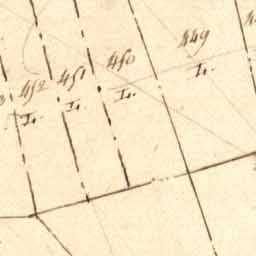 449
I.
450
I.
451
I.
452
I.